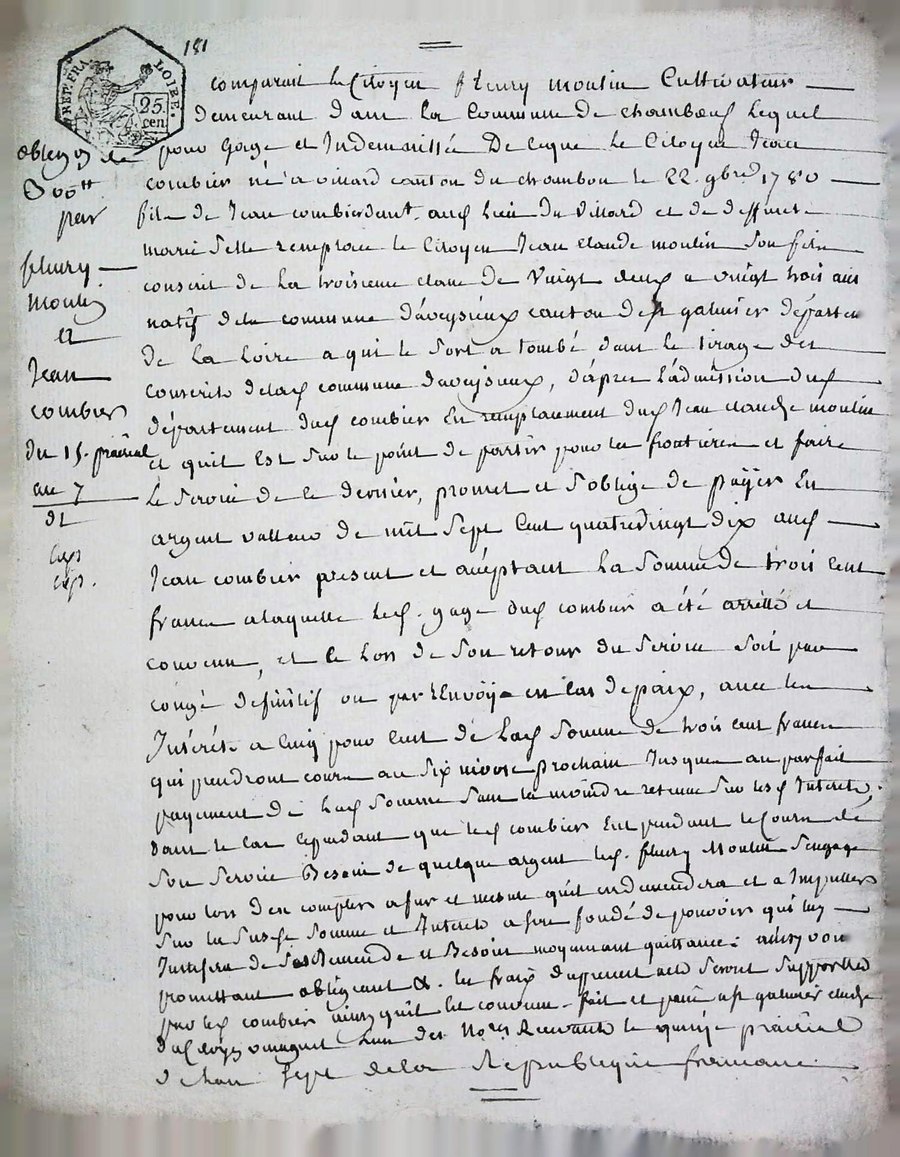 REP. FRA
LOIRE.
25.
cen.
181
comparait le Citoyen fleury moulin Cultivateur
demeurant dans la Commune de chambœuf lequel
pour Gage et Indemnitté De ceque le Citoyen Jean
combier né a canton du chambon le 22. 9bre 1780
fils de Jean combier lieu du villard et de deffunte
marie remplace le Citoyen Jean Claude moulin son fils
conscrit de la troisieme classe de vingt deux a vingt trois ans
natif dela commune d'aveysieux canton de galmier départem
de la Loire a qui le sort a tombé dans le tirage des
conscrits delad commune daveysieux, d'après l'admission dud
département dud combier en remplacement dud Jean claude moulin
et quil est sur le point de partir pour les frontieres et faire
le service de ce dernier, promet et s'oblige de payer en
argent valleur de mil sept cent quatrevingt dix aud
Jean combier present et acceptant la somme de trois cent
francs alaquelle led. gage dud combier a été arretté et
convenu, et ce lors de son retour du service soit par
congé definitif ou par renvoÿ en cas de paix, avec les
Intérêts a cinq pour cent de lad somme de trois cent francs
qui prendront cours au six nivose prochain Jusques au parfait
payement de lad somme sans la moindre retenue sur lesd Interets,
dans le cas cependant que led combier eut pendant le Cours de
son service Besoin de quelque argent led. fleury Moulin s'engage
pour lors d'en compter a fur et mesure quil en demendera et a Imputter
sur la susd somme et Interets a son fondé de pouvoir qui luy
Justifira de ses Demende et Besoin moyennant quittance: ainsy
promettant obligeant &. les fraix du present acte seront supporttés
par led combier ainsy quil est convenu. fait et passé a st galmier etude
du Coyen l'un des Nores Recevants le quinze prairial
de lan sept dela Republique francaise.
obligon de
300tt
par
fleury
Moulin
a
Jean
combier
du 15. prairial
an 7